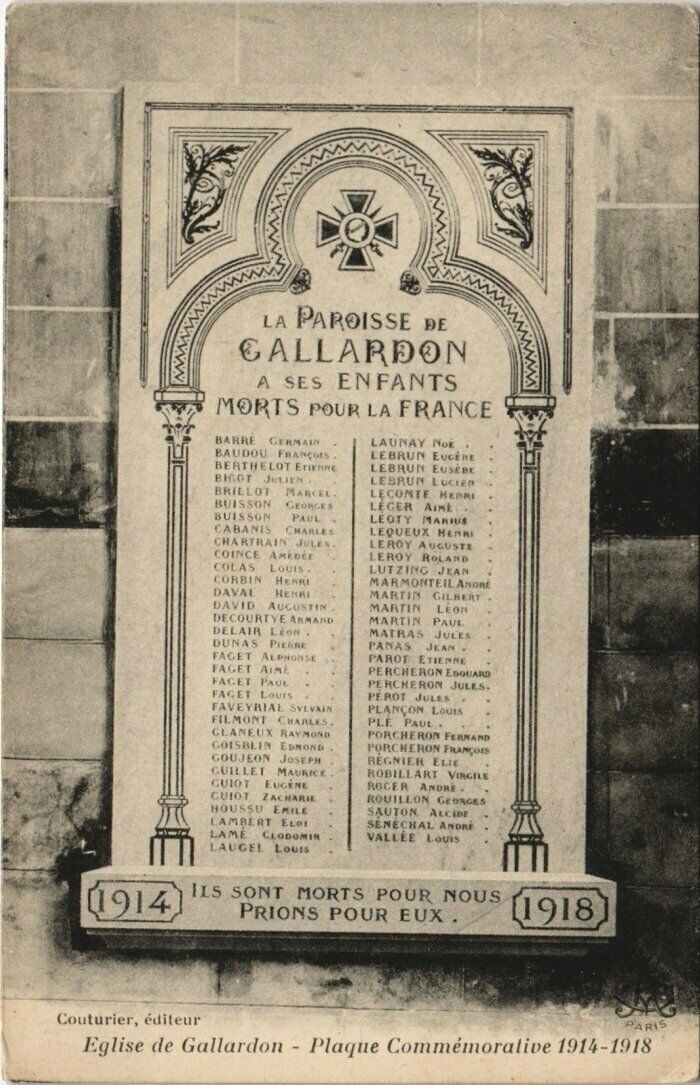 LA PAROISSE DE
GALLARDON
A SES ENFANTS
MORTS POUR LA FRANCE
BARRÉ GERMAIN .
BAUDOU FRANÇOIS .
BERTHELOT ETIENNE
BIGOT JULIEN .
BRILLOT MARCEL .
BUISSON GEORGES
BUISSON PAUL .
CABANIS CHARLES
CHARTRAIN JULES .
COINCE AMÉDÉE
COLAS LOUIS .
CORBIN HENRI
DAVAL HENRI
DAVID AUGUSTIN .
DECOURTYE ARMAND
DELAIR LÉON .
DUNAS PIERRE
FAGET ALPHONSE
FAGET AIMÉ .
FAGET PAUL .
FAGET LOUIS .
FAVEYRIAL SYLVAIN
FILMONT CHARLES .
GLANEUX RAYMOND
GOISBLIN EDMOND .
GOUJEON JOSEPH
GUILLET MAURICE .
GUIOT EUGÈNE
GUIOT ZACHARIE
HOUSSU EMILE
LAMBERT ELOI
LAMÉ CLODOMIR
LAUGEL LOUIS
LAUNAY NOË .
LEBRUN EUGÈNE
LEBRUN EUSÈBE
LEBRUN LUCIEN
LECOMTE HENRI
LÉGER AIMÉ .
LÉOTY MARIUS
LEQUEUX HENRI
LEROY AUGUSTE
LEROY ROLAND
LUTZING JEAN
MARMONTEIL ANDRÉ
MARTIN GILBERT
MARTIN LÉON
MARTIN PAUL
MATRAS JULES
PANAS JEAN .
PAROT ETIENNE
PERCHERON EDOUARD
PERCHERON JULES .
PÉROT JULES .
PLANÇON LOUIS
PLÉ PAUL .
PORCHERON FERNAND
PORCHERON FRANÇOIS
RÉGNIER ELIE
ROBILLART VIRGILE
ROGER ANDRÉ .
ROUILLON GEORGES
SAUTON ALCIDE
SÉNÉCHAL ANDRÉ
VALLÉE LOUIS
1914
ILS SONT MORTS POUR NOUS
PRIONS POUR EUX .
1918
Couturier, éditeur
PARIS
Eglise de Gallardon - Plaque Commémorative 1914-1918